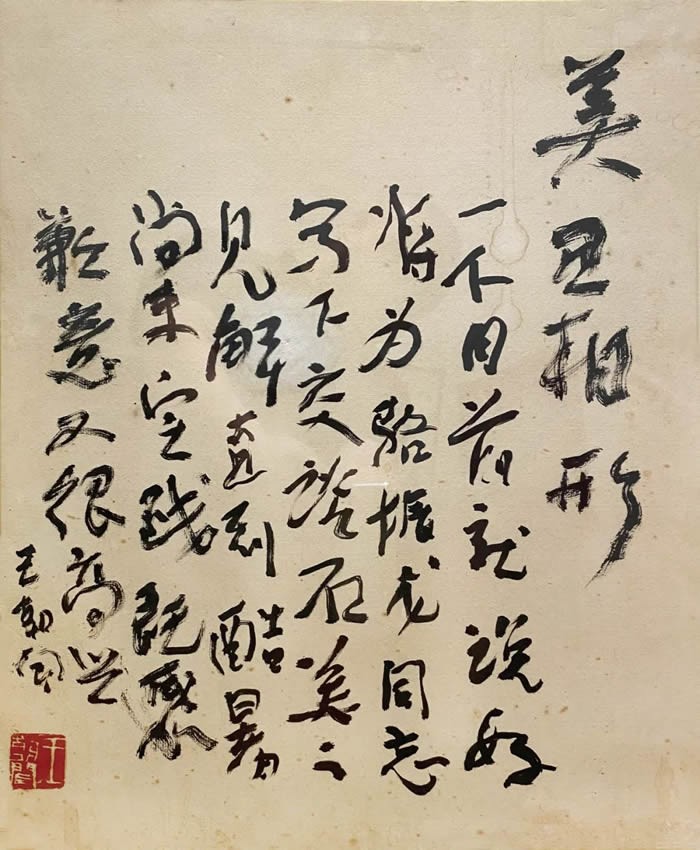 美丑相形
一个月前就说好
将为骆振龙同志
写下交谈石美之
见解直到酷暑
尚未实践既感
歉意又很高兴
王朝闻
王朝闻